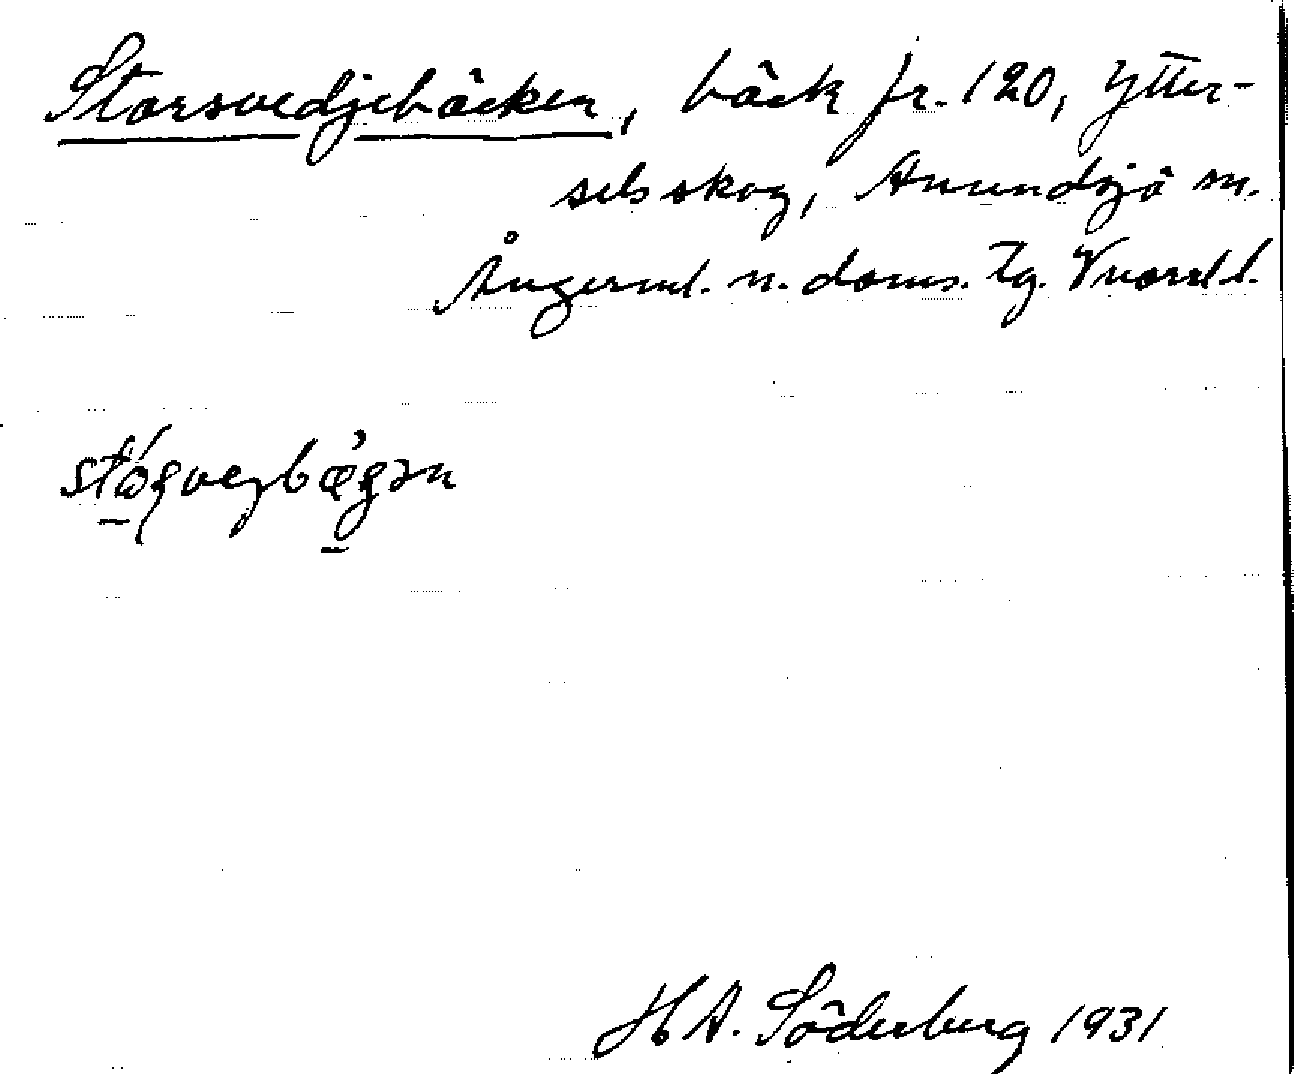 Storsvedjebäcken, bäck fr. 120, Ytter-
selsskog, Anundsjö sn.
Ångerml. n. doms. Tg. Västernl. l.
H A. Söderberg 1931